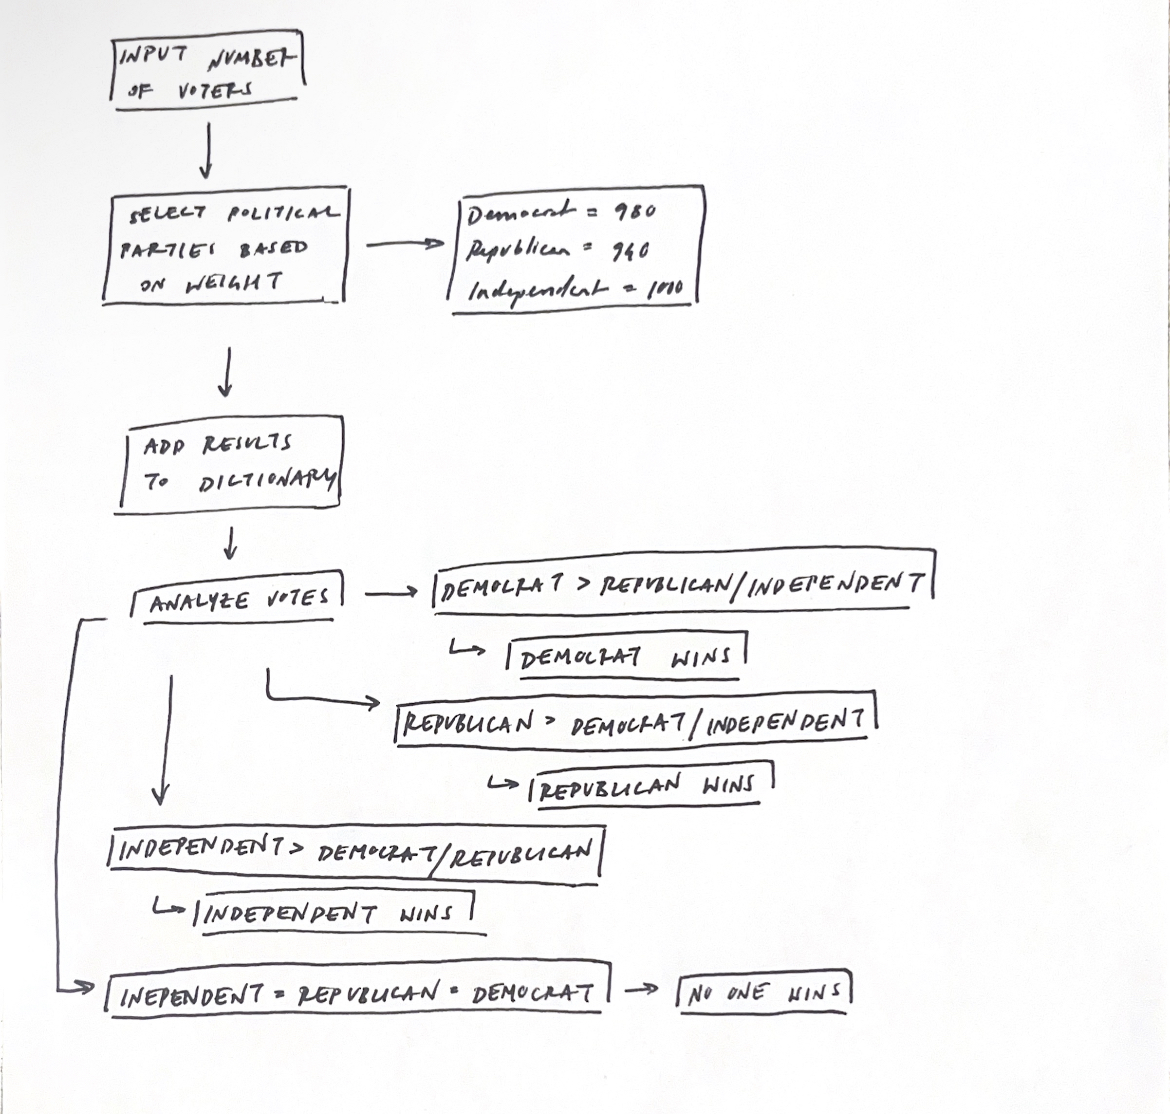 INPUT NUMBER
OF VOTERS
SELECT POLITICAL
PARTIES BASED
ON WEIGHT
Democrat = 980
Republican = 940
Independent = 1000
ADD RESULTS
TO DICTIONARY
ANALYZE VOTES
DEMOCRAT > REPUBLICAN/INDEPENDENT
DEMOCRAT WINS
REPUBLICAN > DEMOCRAT/INDEPENDENT
REPUBLICAN WINS
INDEPENDENT > DEMOCRAT/REPUBLICAN
INDEPENDENT WINS
INEPENDENT = REPUBLICAN = DEMOCRAT
NO ONE WINS